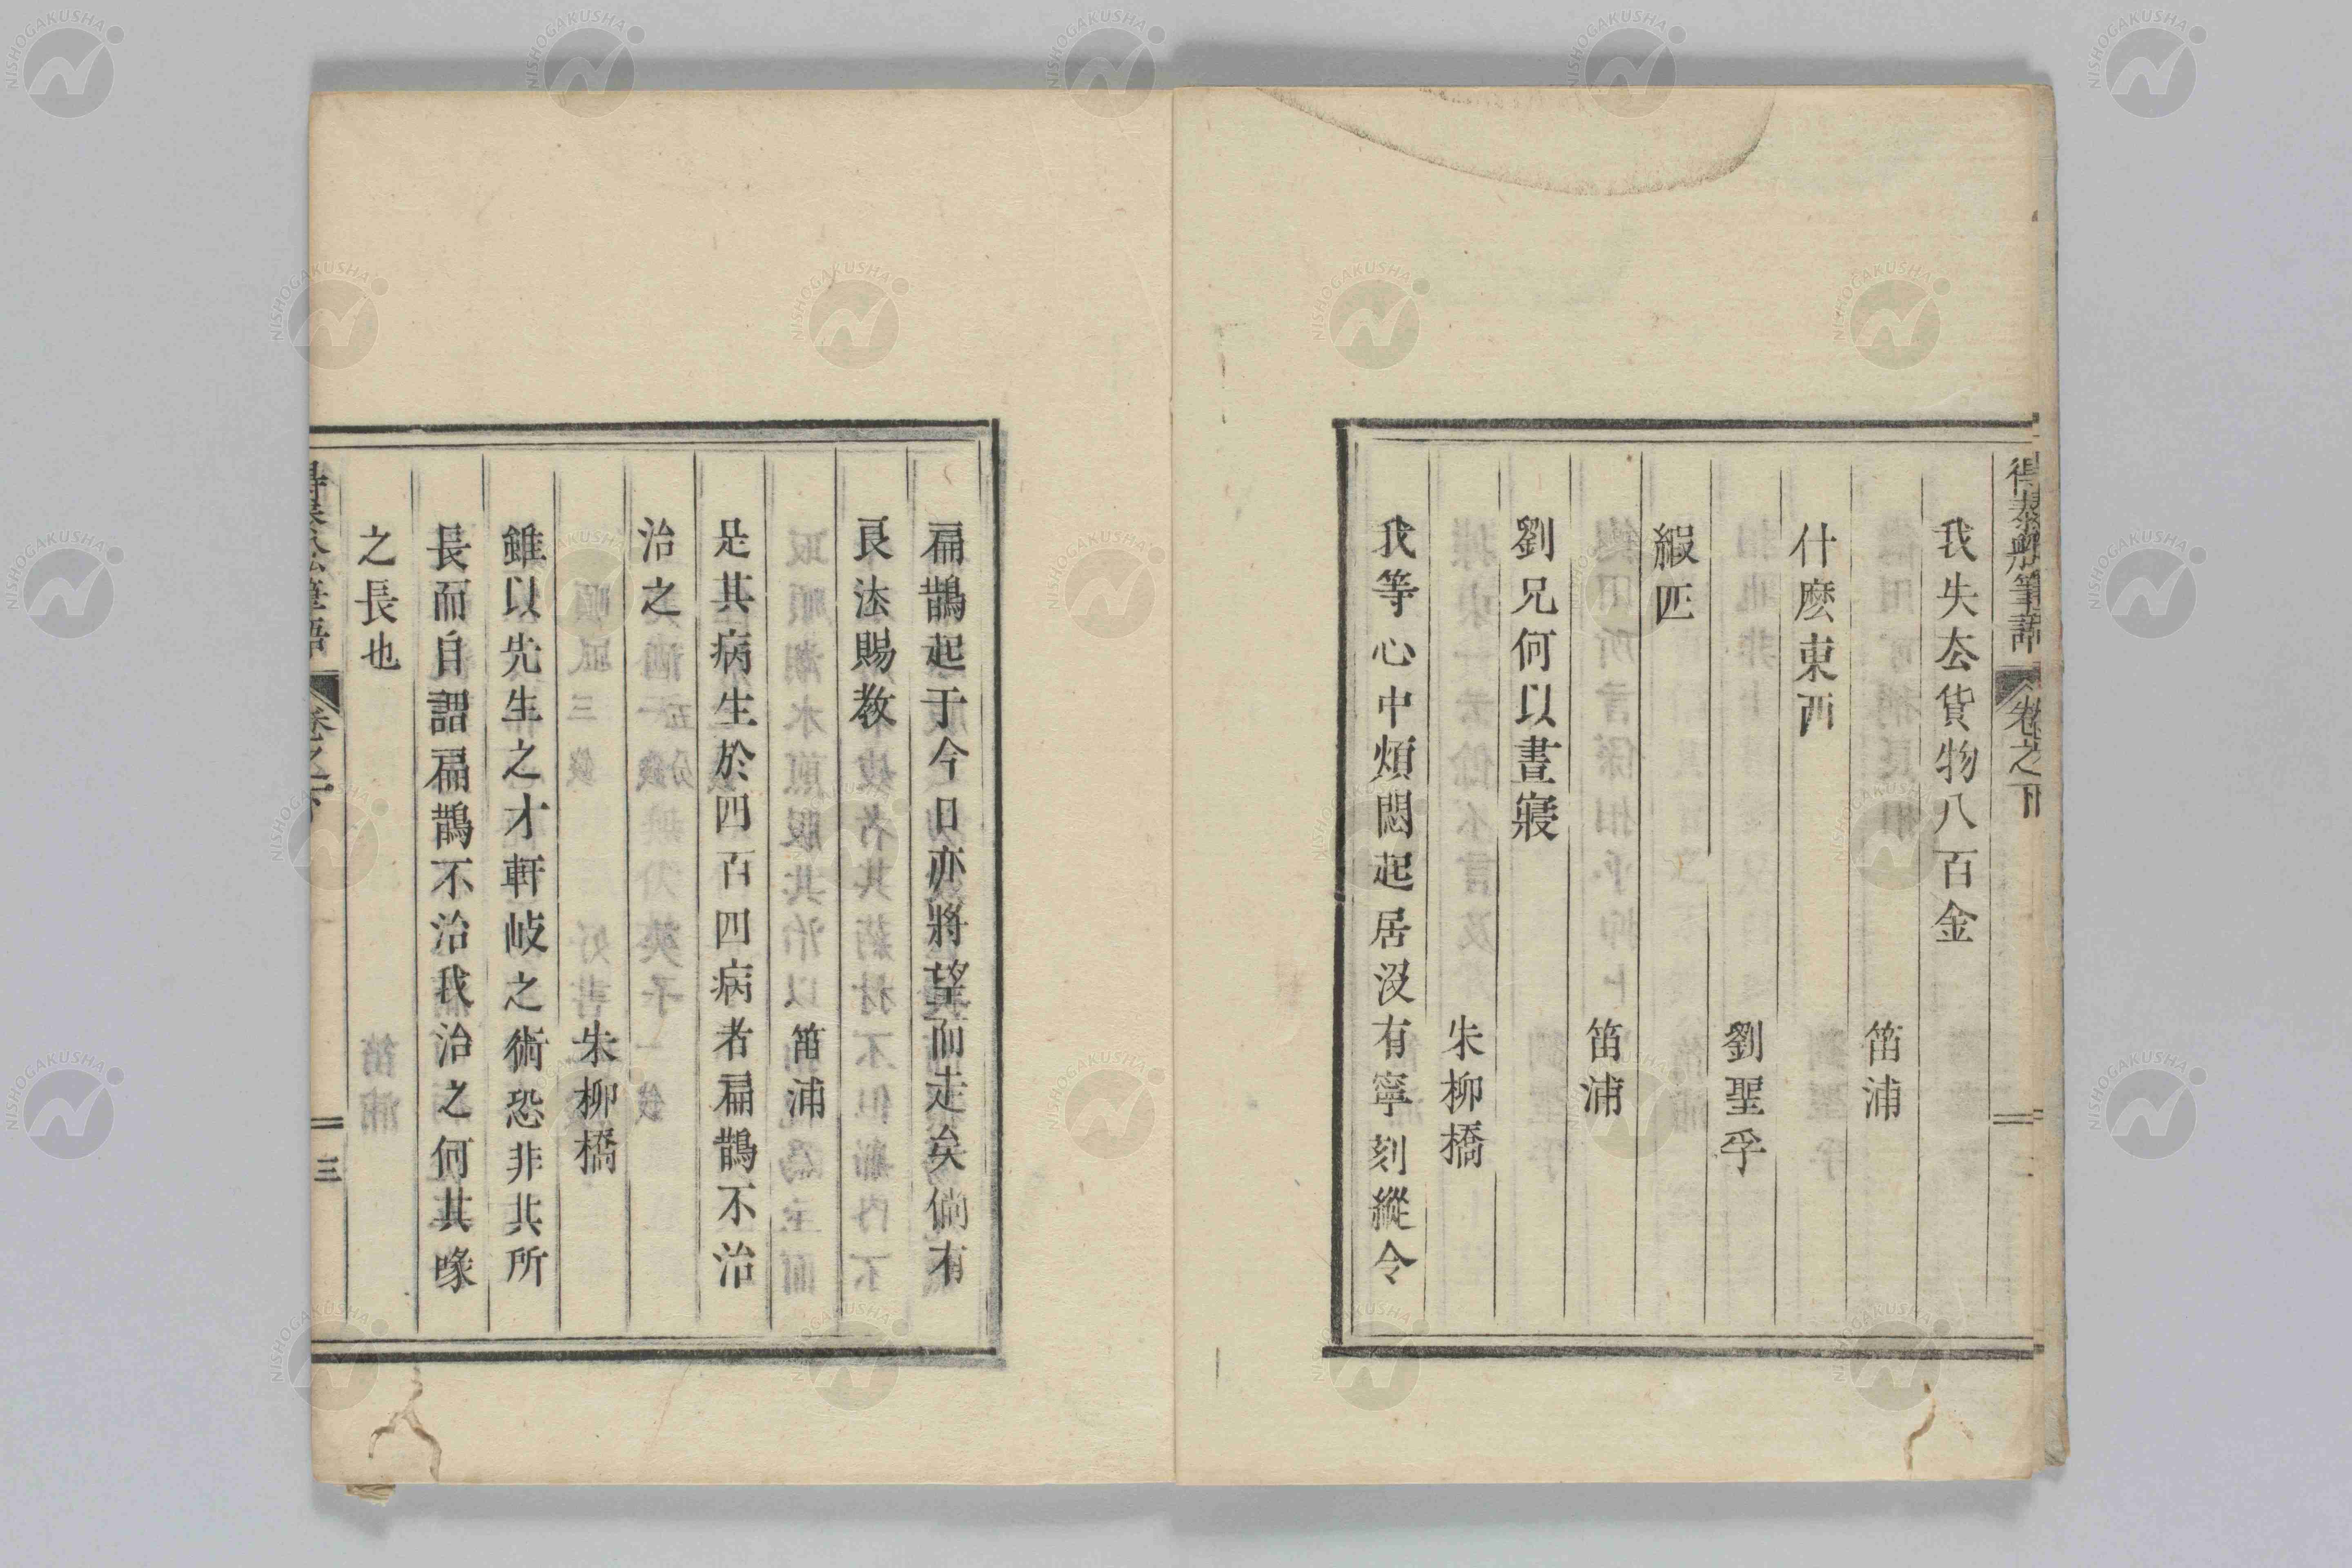 得泰船筆語 卷之下 二
我失去貨物八百金
笛浦
什麽東西
劉聖孚
緞匹
笛浦
劉兄何以晝寢
朱柳橋
我等心中煩悶起居沒有寧刻縱令
扁鵲起于今日亦將望而走矣倘有
良法賜教
笛浦
是其病生於四百四病者扁鵲不治
治之
朱柳橋
雖以先生之才軒岐之術恐非其所
長而自謂扁鵲不治我治之何其喙
之長也
三
NISHOGAKUSHA